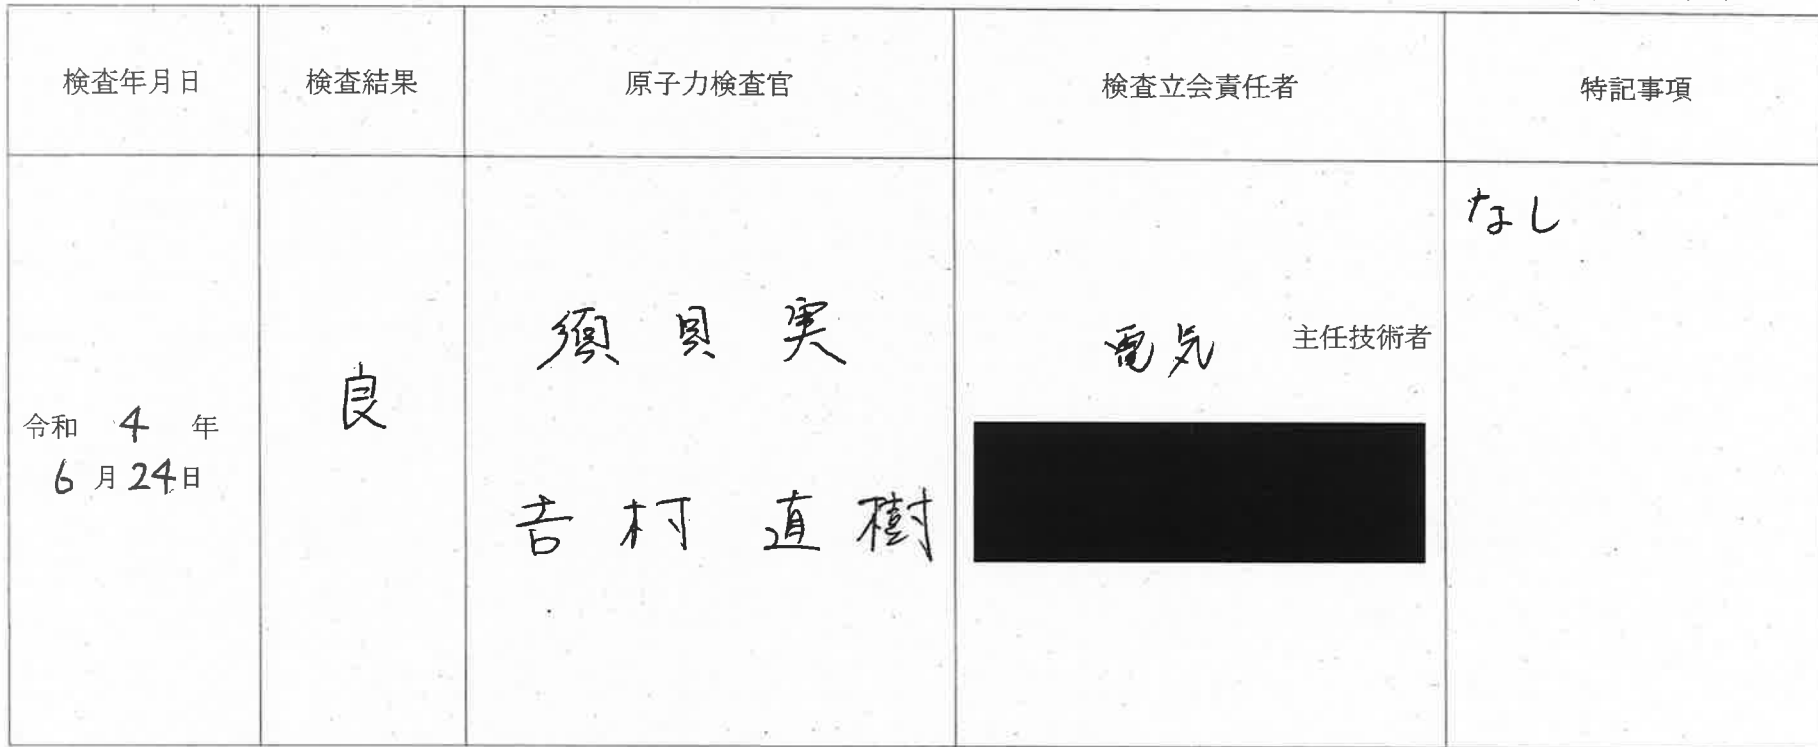 検査年月日 検査結果 原子力検査官 検査立会責任者 特記事項
令和 4 年
6 月 24 日
良
須貝 実
吉村 直樹
電気 主任技術者
なし